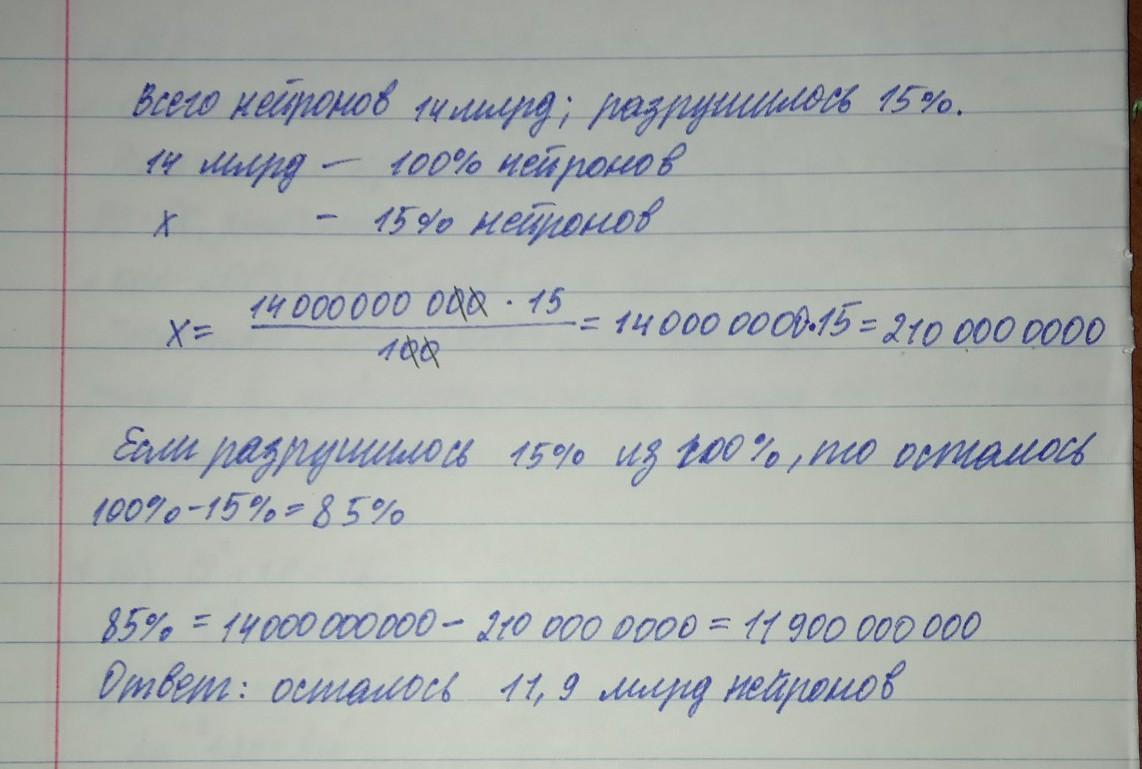 Всего нейронов 14 млрд; разрушилось 15%.
14 млрд — 100% нейронов
х – 15% нейронов
X = 14 000 000 000 · 15 / 100 = 14 000 0000·15 = 210 000 0000
Если разрушилось 15% из 100%, то осталось
100% - 15% = 85%
85% = 14000000000 - 210 000 0000 = 11 900 000 000
Ответ: осталось 11,9 млрд нейронов